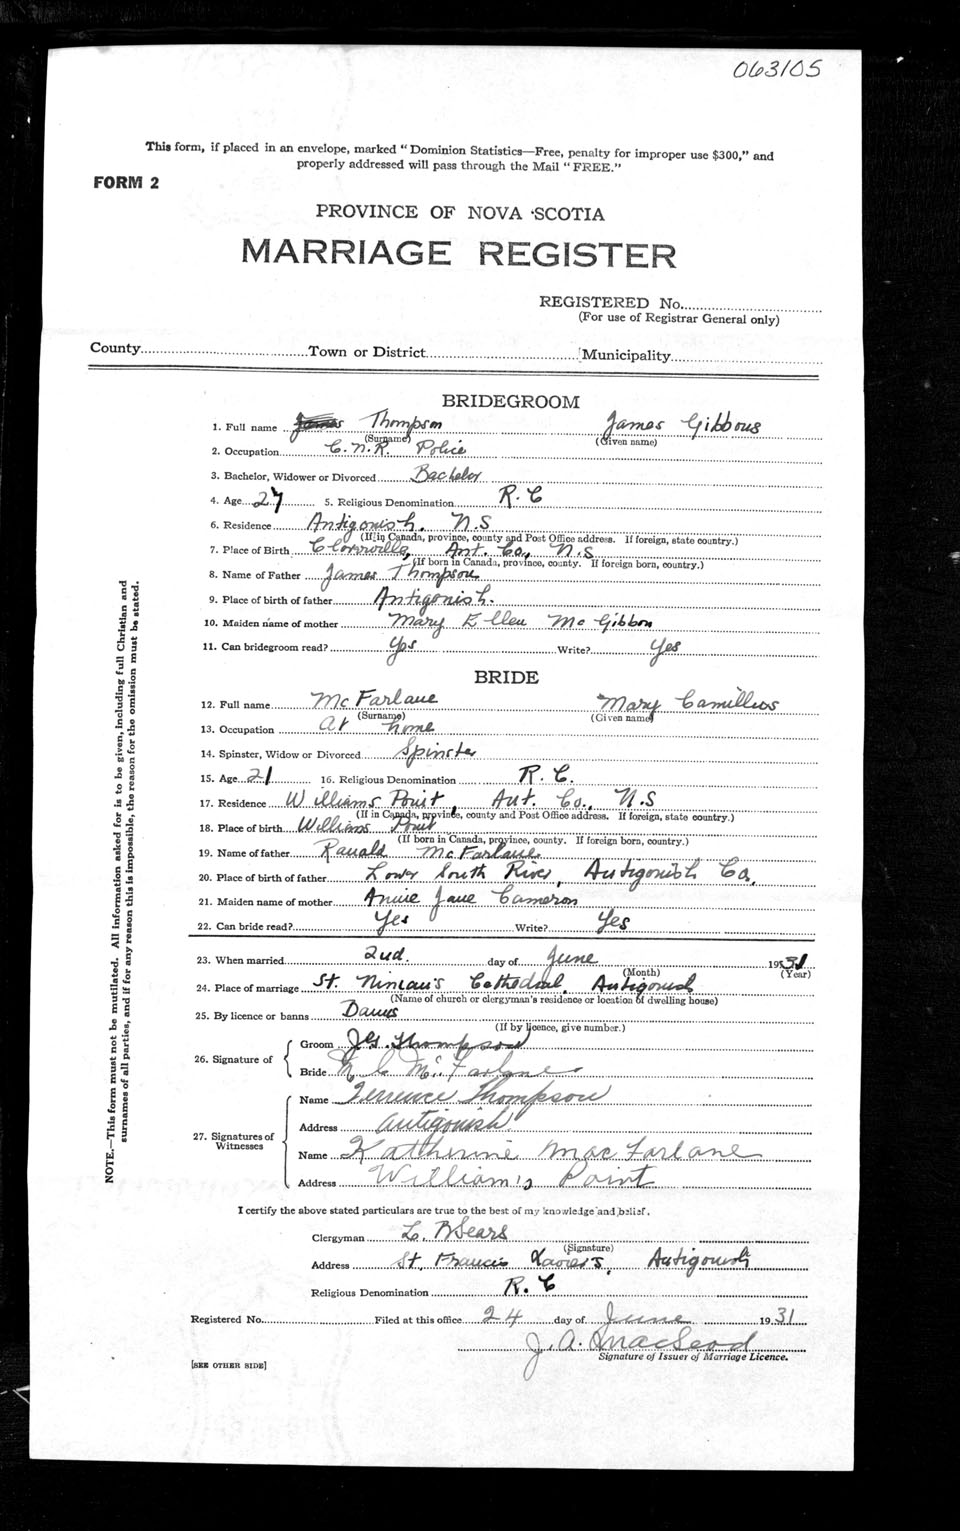 063105
This form, if placed in an envelope, marked "Dominion Statistics—Free, penalty for improper use $300," and
properly addressed will pass through the Mail "FREE."
FORM 2
PROVINCE OF NOVA SCOTIA
MARRIAGE REGISTER
REGISTERED No.
(For use of Registrar General only)
County Town or District Municipality
BRIDEGROOM
1. Full name James Thompson James Gibbons
(Surname) (Given name)
2. Occupation C.N.R. Police
3. Bachelor, Widower or Divorced Bachelor
4. Age 27 5. Religious Denomination R.C
6. Residence Antigonish. N.S
(If in Canada, province, county and Post Office address. If foreign, state country.)
7. Place of Birth Cloverville, Ant. Co., N.S
(If born in Canada, province, county. If foreign born, country.)
8. Name of Father James Thompson
9. Place of birth of father Antigonish.
10. Maiden name of mother Mary Ellen McGibbon
11. Can bridegroom read? Yes Write? Yes
BRIDE
12. Full name McFarlane Mary Camillus
(Surname) (Given name)
13. Occupation At home
14. Spinster, Widow or Divorced Spinster
15. Age 21 16. Religious Denomination R.C.
17. Residence Williams Point, Ant. Co., N.S
(If in Canada, province, county and Post Office address. If foreign, state country.)
18. Place of birth Williams Point
(If born in Canada, province, county. If foreign born, country.)
19. Name of father Ranald McFarlane
20. Place of birth of father Lower South River, Antigonish Co.
21. Maiden name of mother Annie Jane Cameron
22. Can bride read? Yes Write? Yes
23. When married 2nd. day of June 1931
(Month) (Year)
24. Place of marriage St. Ninian's Cathedral, Antigonish
(Name of church or clergyman's residence or location of dwelling house)
25. By licence or banns Banns
(If by licence, give number.)
26. Signature of
Groom J.G. Thompson
Bride M C McFarlane
27. Signatures of Witnesses
Name Terrence Thompson
Address Antigonish
Name Katherine MacFarlane
Address William's Point
I certify the above stated particulars are true to the best of my knowledge and belief.
Clergyman L. Sears
(Signature)
Address St. Francis Xavier's, Antigonish
Religious Denomination R.C
Registered No. Filed at this office 24 day of June 1931
J. A. MacLeod
Signature of Issuer of Marriage Licence.
[SEE OTHER SIDE]
NOTE.—This form must not be mutilated. All information asked for is to be given, including full Christian and
surnames of all parties, and if for any reason this is impossible, the reason for the omission must be stated.